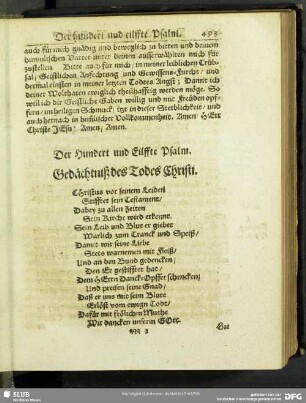 Der hundert und eilffte Psalm. 493
auch für mich gnädig und beweglich zu bitten und deinem
himmlischen Vatter unter deinen außerwählten mich für
zustellen. Bitte auch für mich / in meiner leiblichen Trüb-
sal / Geistlichen Anfechtung und Gewissens-Furcht / und
dermal einsten in meiner letzten Todtes Angst ; Damit ich
deiner Wolthaten ewiglich theilhafftig werden möge. So
will ich dir Geistliche Gaben willig und mit Freuden opf-
fern / im heiligen Schmuck / itzt in dieser Sterblichkeit / und
auch hernach in himlischer Vollkommenheit. Amen / HErr
Christe JEsu / Amen / Amen.
Der Hundert und Eilffte Psalm.
Gedächtnuß des Todes Christi.
CHristus vor seinem Leiden
Stifftet sein Testament /
Dabey zu allen Zeiten
Sein Kirche wird erkent.
Sein Leib und Blut er giebet
Warlich zum Tranck und Speiß /
Damit wir seine Liebe
Stets warnemen mit Fleiß /
Und an den Bund gedencken /
Den Er gestifftet hat /
Dem HErrn Danck-Opffer schencken /
Und preisen seine Gnad /
Daß er uns mit seim Blute
Erlöst vom ewign Todt /
Dafür mit frölichm Muthe
Wir dancken unserm GOtt.
Gut
SLUB
DFG